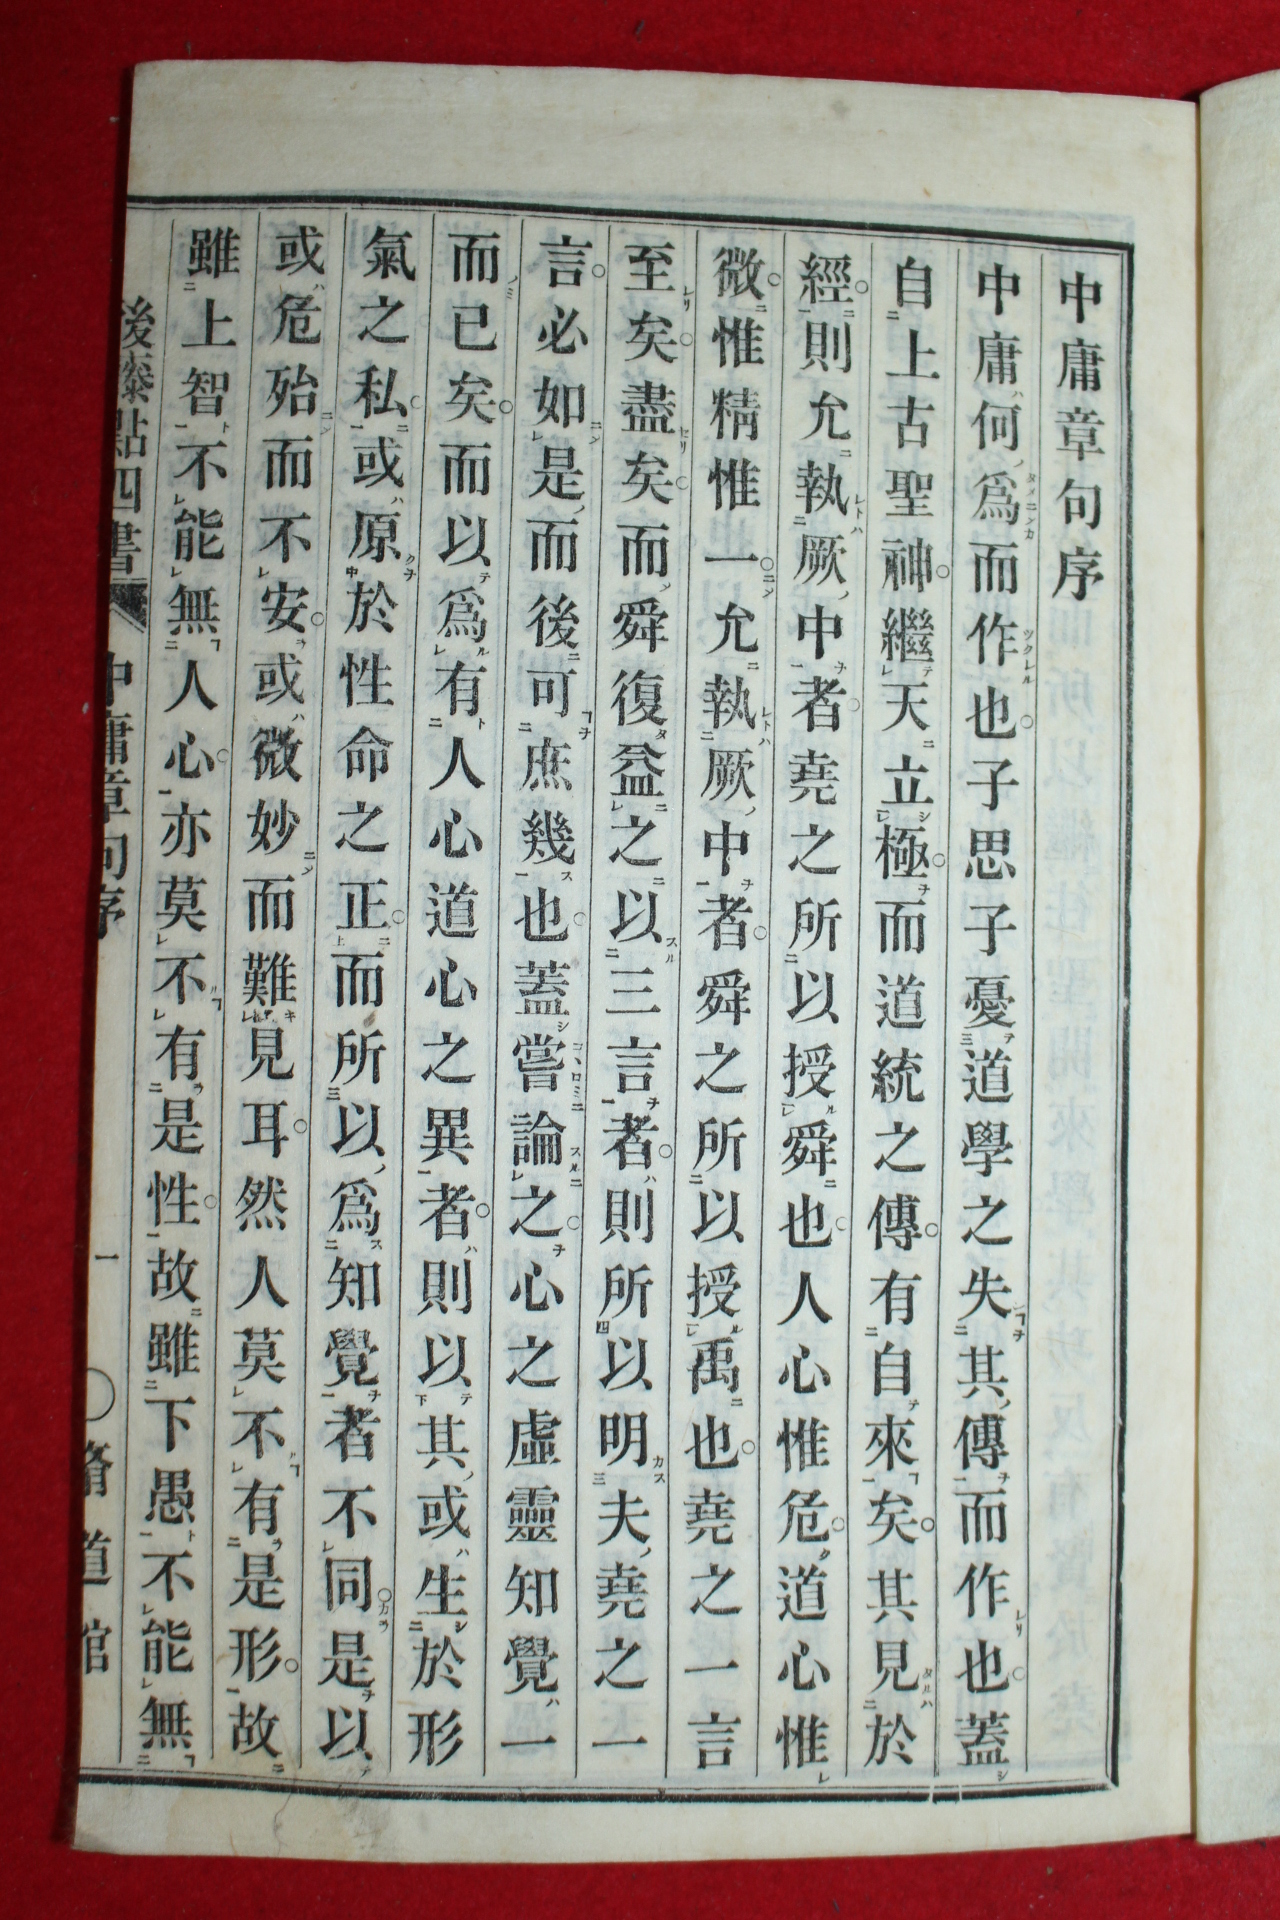 中庸章句序
中庸何爲而作也子思子憂道學之失其傳而作也蓋
自上古聖神繼天立極而道統之傳有自來矣其見於
經則允執厥中者堯之所以授舜也人心惟危道心惟
微惟精惟一允執厥中者舜之所以授禹也堯之一言
至矣盡矣而舜復益之以三言者則所以明夫堯之一
言必如是而後可庶幾也蓋嘗論之心之虛靈知覺一
而已矣而以爲有人心道心之異者則以其或生於形
氣之私或原於性命之正而所以爲知覺者不同是以
或危殆而不安或微妙而難見耳然人莫不有是形故
雖上智不能無人心亦莫不有是性故雖下愚不能無
後藤點四書 中庸章句序 一 脩道館